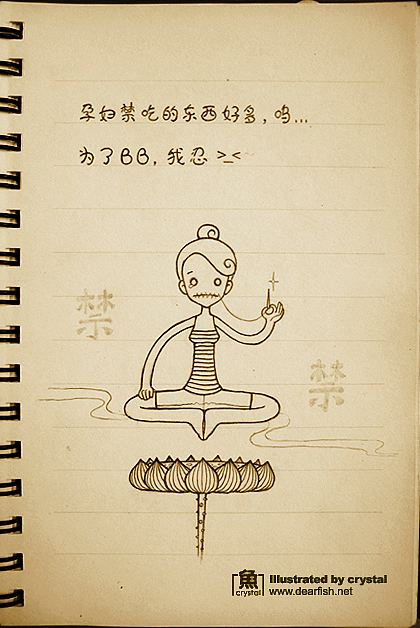 孕妇禁吃的东西好多，呜...
为了BB，我忍 >_<
禁
禁
魚 Illustrated by crystal
crystal www.dearfish.net